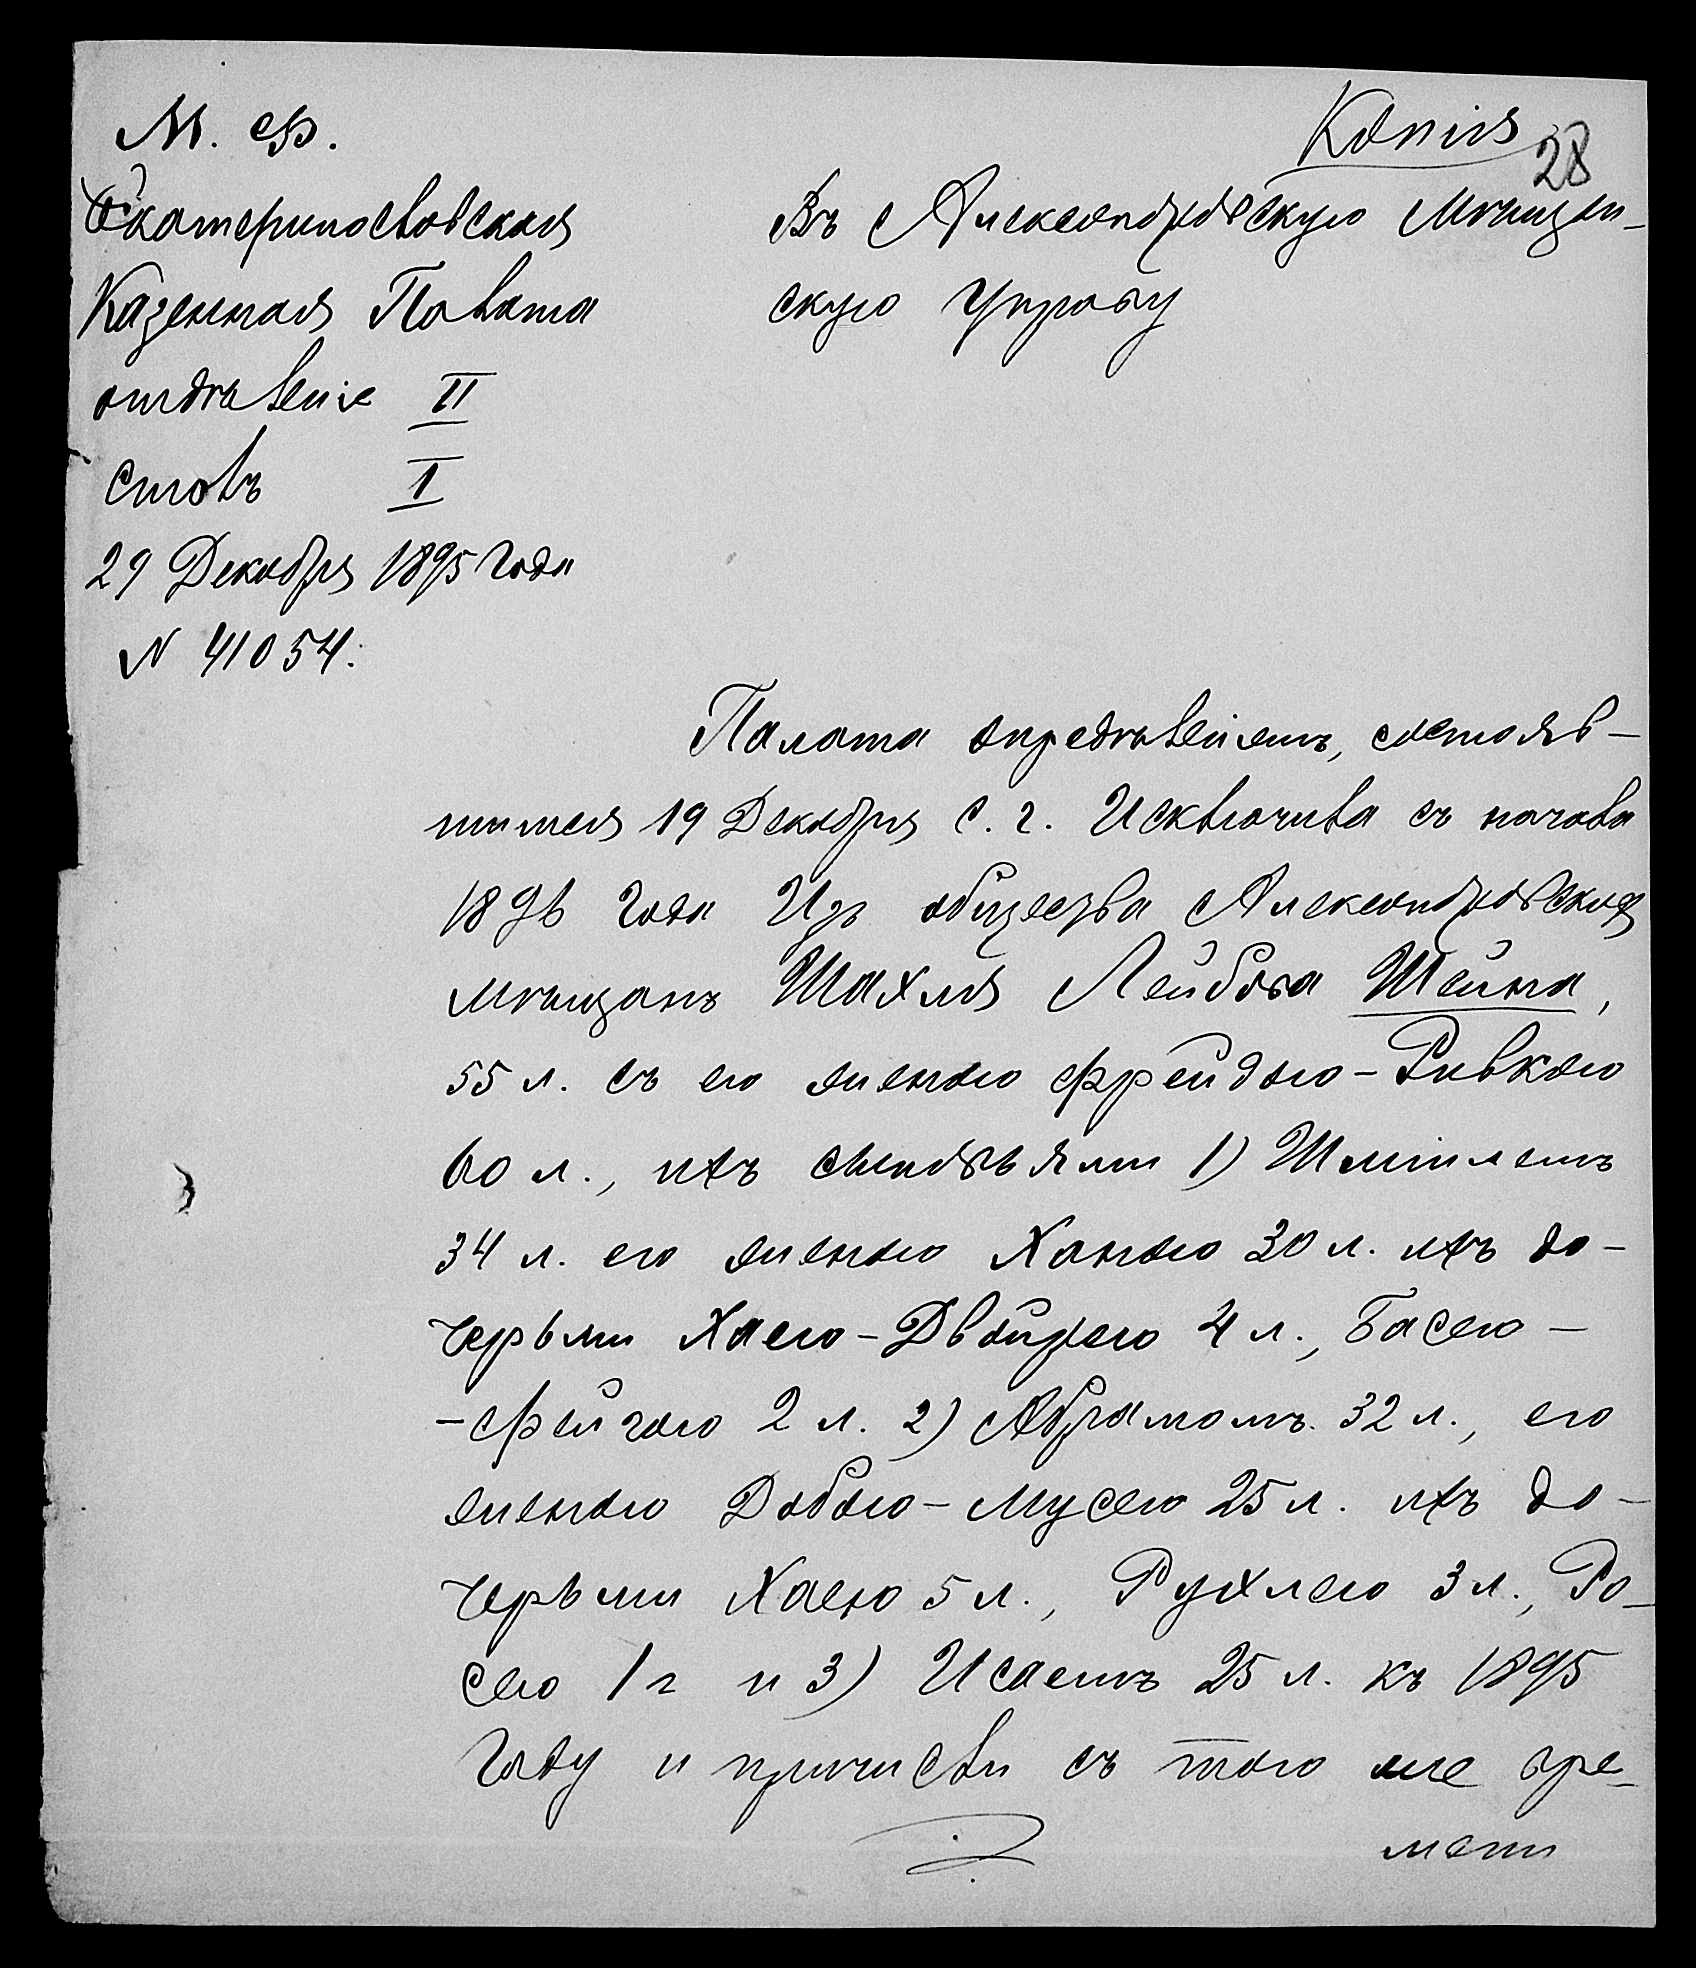 М. Ф.
Копія
28
Екатеринославская
Казенная Палата
отдѣленіе II
столъ I
29 Декабря 1895 года
N 41054.
Въ Александровскую Мѣщан-
скую Управу
Палата опредѣленіемъ, состояв-
шимся 19 Декабря с. г. Исключила съ начала
1896 года Изъ общества Александровскихъ
мѣщанъ Шахля Лейбова Шейна,
55 л. съ его женою Фрейдою-Ривкою
60 л., ихъ сыновьями 1) Шміилемъ
34 л. его женою Ханою 30 л. ихъ до-
черьми Хаею-Двойрею 4 л., Басею-
-Фейгою 2 л. 2) Абрамомъ 32 л., его
женою Добою-Мусею 25 л. ихъ до-
черьми Хаею 5 л., Рухлею 3 л., Ро-
сею 1 г и 3) Исаемъ 25 л. къ 1895
году и причисли съ того же вре-
мени